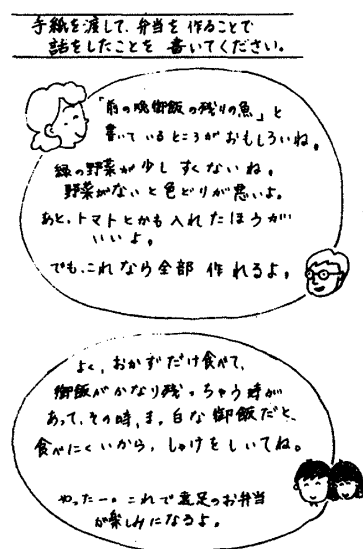 手紙を渡して、弁当を作ることで
話をしたことを 書いてください。
「前の晩御飯の残りの魚」と
書いているところがおもしろいね。
緑の野菜が少し すくないね。
野菜がないと色どりが悪いよ。
あと、トマトとかも入れたほうが
いいよ。
でも、これなら全部 作れるよ。
よく、おかずだけ食べて、
御飯がかなり残っちゃう時が
あって、その時、ま。白な御飯だと、
食べにくいから、しゃけをしいてね。
やったー。これで遠足のお弁当
が楽しみになるよ。